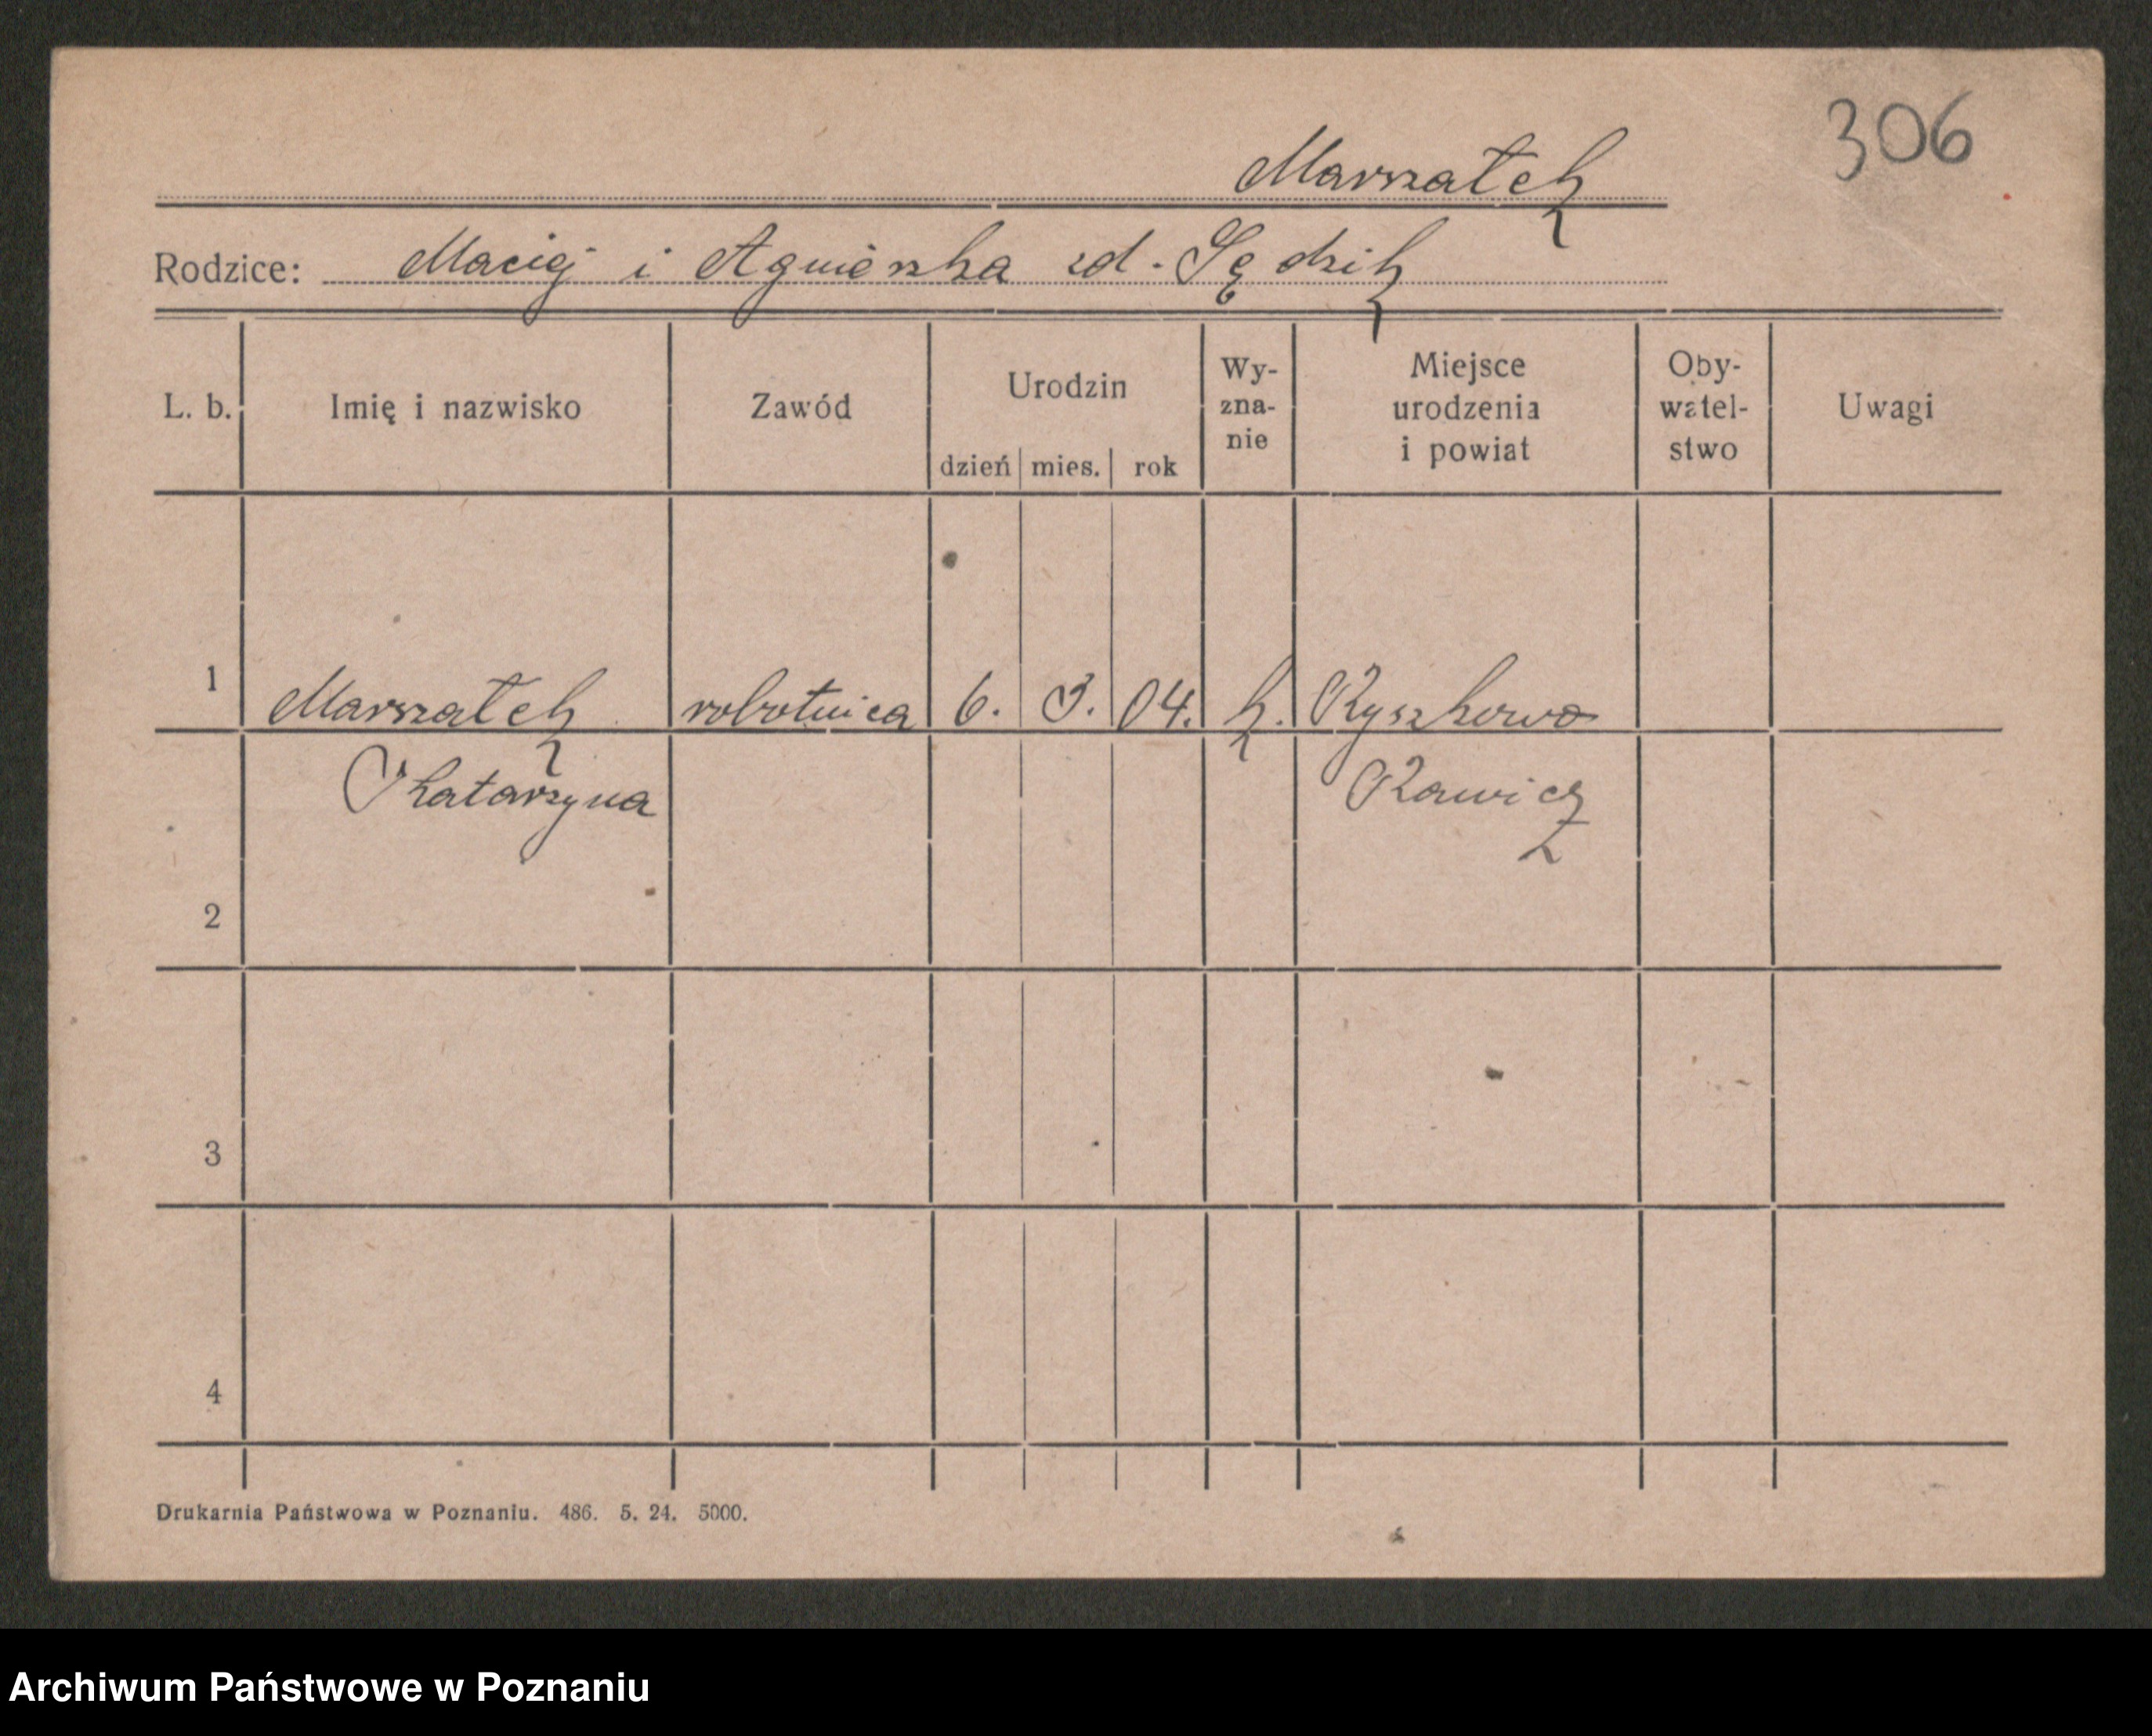 306
Marszałek
Rodzice: Maciej i Agnieszka zd. Sędzik
L. b. Imię i nazwisko Zawód Urodzin dzień mies. rok Wy-zna-nie Miejsce urodzenia i powiat Oby-watel-stwo Uwagi
1 Marszałek robotnica 6. 3. 04. k. Ryszkowo
Katarzyna Rawicz
2
3
4
Drukarnia Państwowa w Poznaniu. 486. 5. 24. 5000.
Archiwum Państwowe w Poznaniu